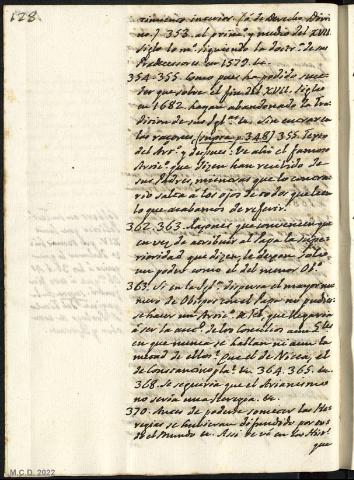 128.
timiento interior. Já de Derecho Divi-
no.) 353. al princ.º y medio del XVII
siglo lo m.º siguiendo la doctr.ª de sus
Predecesores en 1579. &c.
354-355. Como pues ha podido suce-
der que sobre el fin del XVII. Siglo
en 1682. hayan abandonado la tra-
dicion de sus Igl.ˢ &c. sin enervar
las razones, (supra p. 348) 355 Texto
del Art.º y defensa: De ahi el famoso
Artic.º que dizen han recibido de
sus Padres, mientras que lo contra-
rio salta á los ojos de todos que leen
lo que acabamos de referir.
362. 363. Razones que convencen que
en vez de atribuir al Papa la supe-
rioridad que dizen, le dexan solo
un poder como el del menor Ob.º
363. Si en la Igl.ª dispersa el mayor nu-
mero de Obispos con el Papa no pudie-
se hacer un Artic.º de Fé, que llegaria
á ser la aut.º de los Concilios aun G.les
en que nunca se hallan ni aun la
mitad de ellos? Que el de Nicea, el
de Constantinopla? &c. 364. 365. &c.
368. Se seguiria que el Arrianismo
no seria una heregia. &c.
370. Antes de poderse someter las He-
regias se hubieran difundido por to-
do el Mundo &c. Assi se vé en las Hist.ˢ
que
M.C.D. 2022